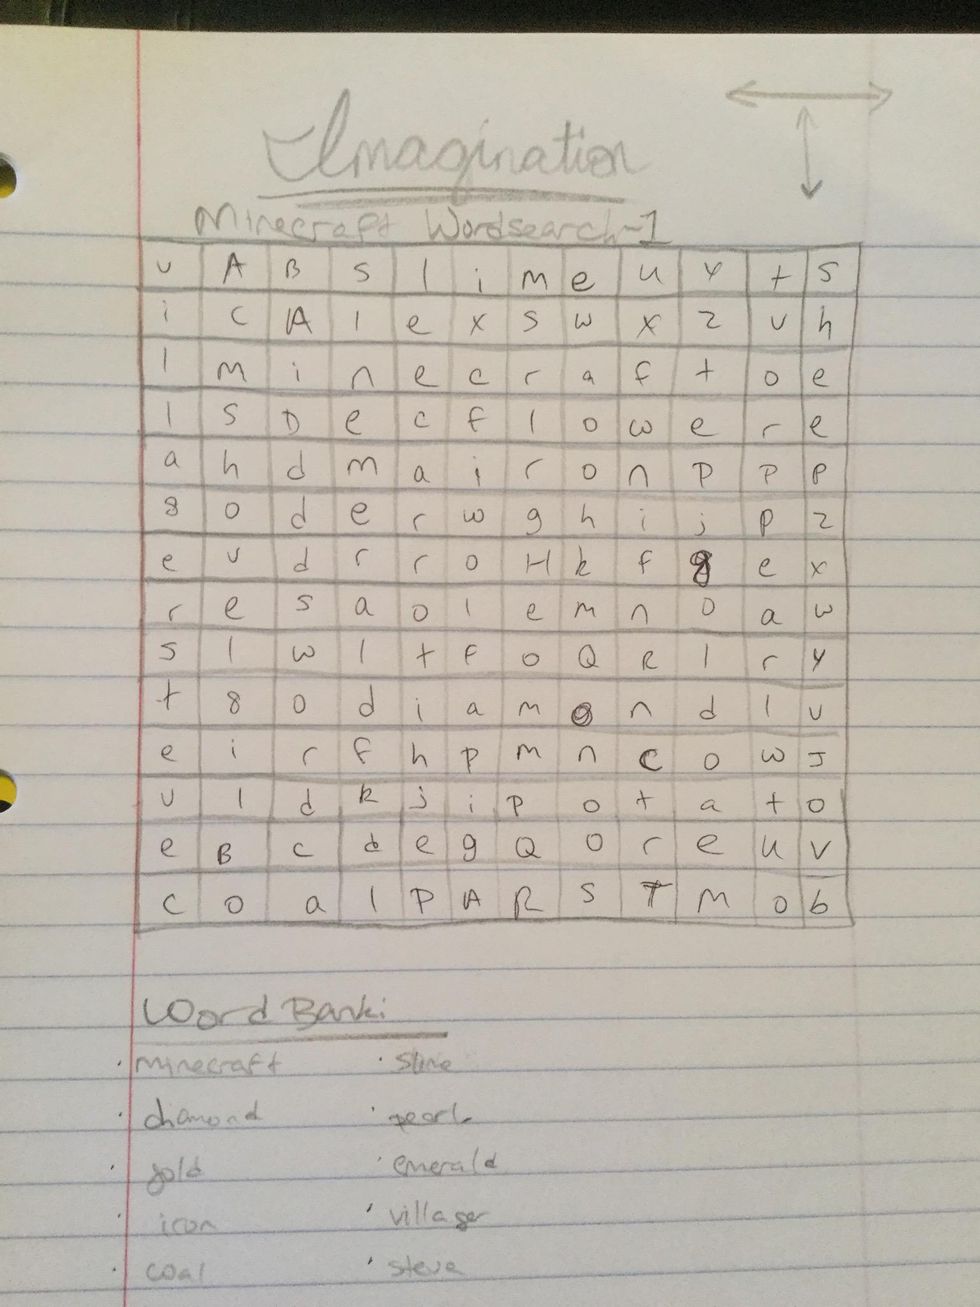 Imagination
Minecraft Wordsearch-1
v A B s l i m e u y t s
i C A l e x s w x z v h
l m i n e c r a f t o e
l S D e c f l o w e r e
a h d m a i r o n p p p
g o d e r w g h i j p z
e v d r r o H k f g e x
r e s a o l e m n o a w
s l w l t f o Q R l r y
t g o d i a m o n d l v
e i r f h p m n c o w J
v l d k j i p o t a t o
e B c d e g Q o r e u v
c o a l P A R S T M o b
Word Bank:
· minecraft · slime
· diamond · pearl
· gold · emerald
· iron · villager
· coal · steve